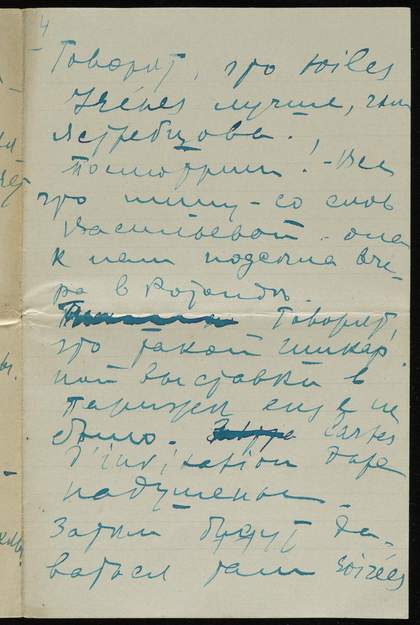 4
Говорят, что toiles
лучше, чем
Ястребцова.
Посмотрим! - Все
что пишу - со слов
Васильевой - она
к нам подсела вче-
ра в Ротонде.
Говорят,
что такой шикар
ной выставки в
Париже еще не
было. cartes
d'invitation даже
надушены.
Затем будут да-
ваться там soirées